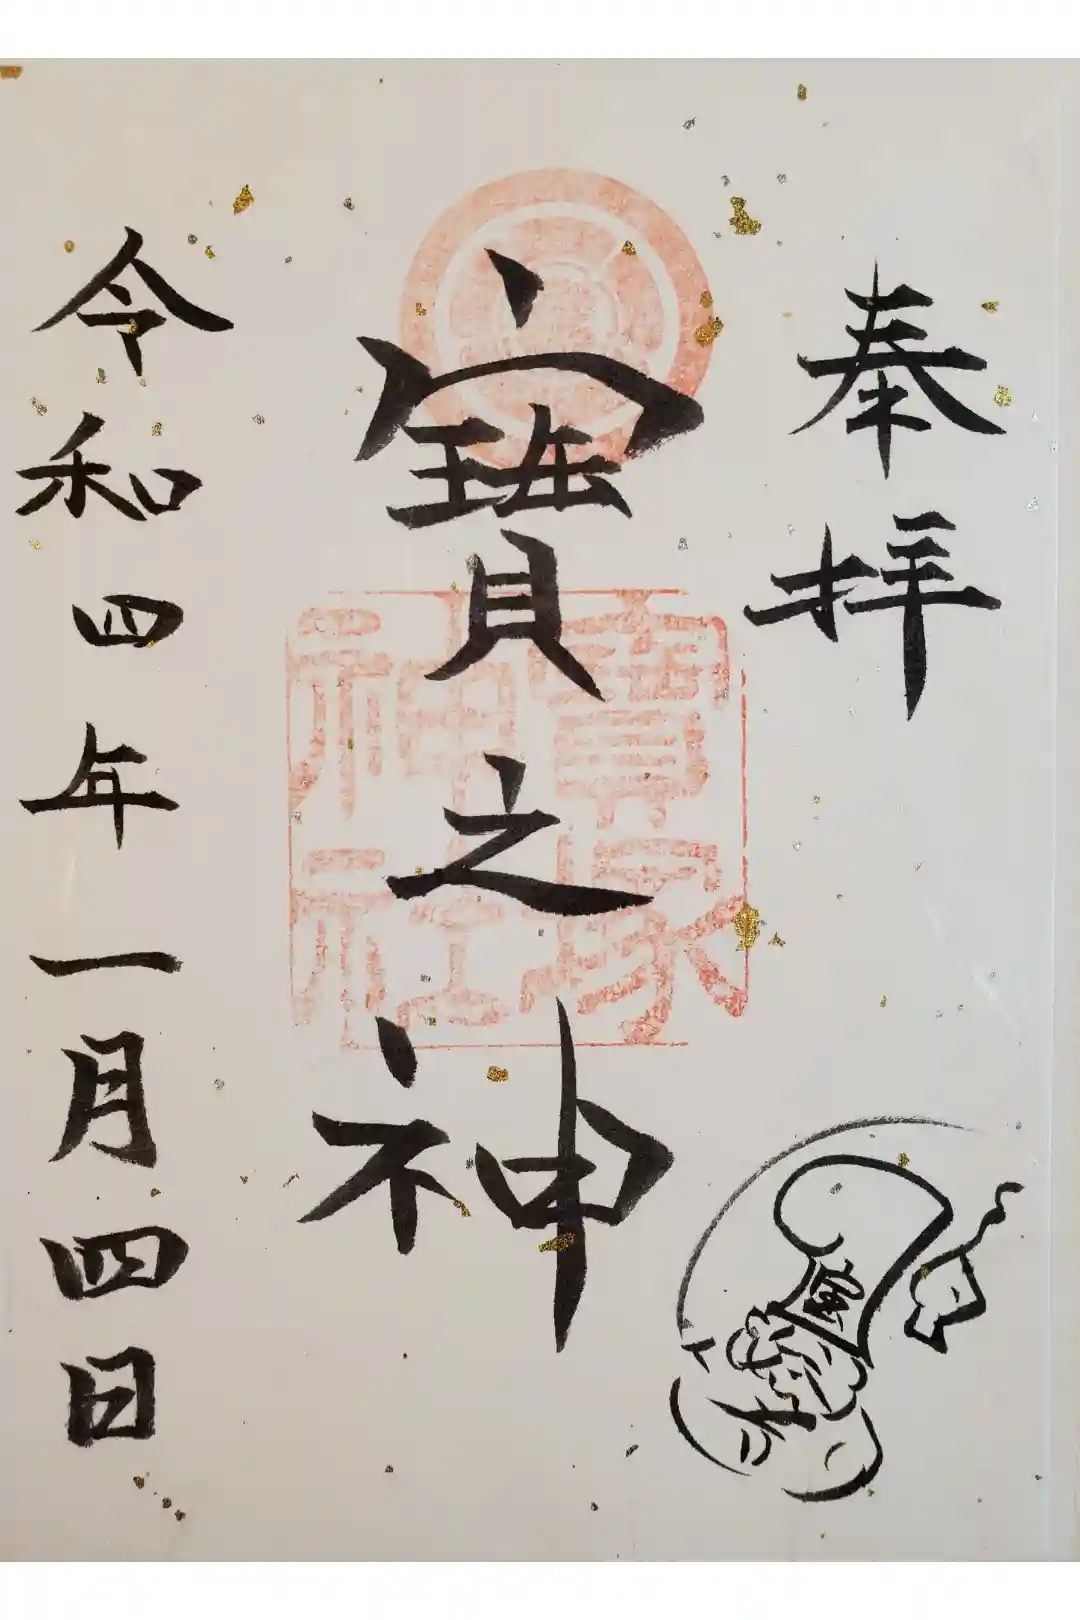 奉拝
寳之神
寳塚神社
寳
令和四年一月四日